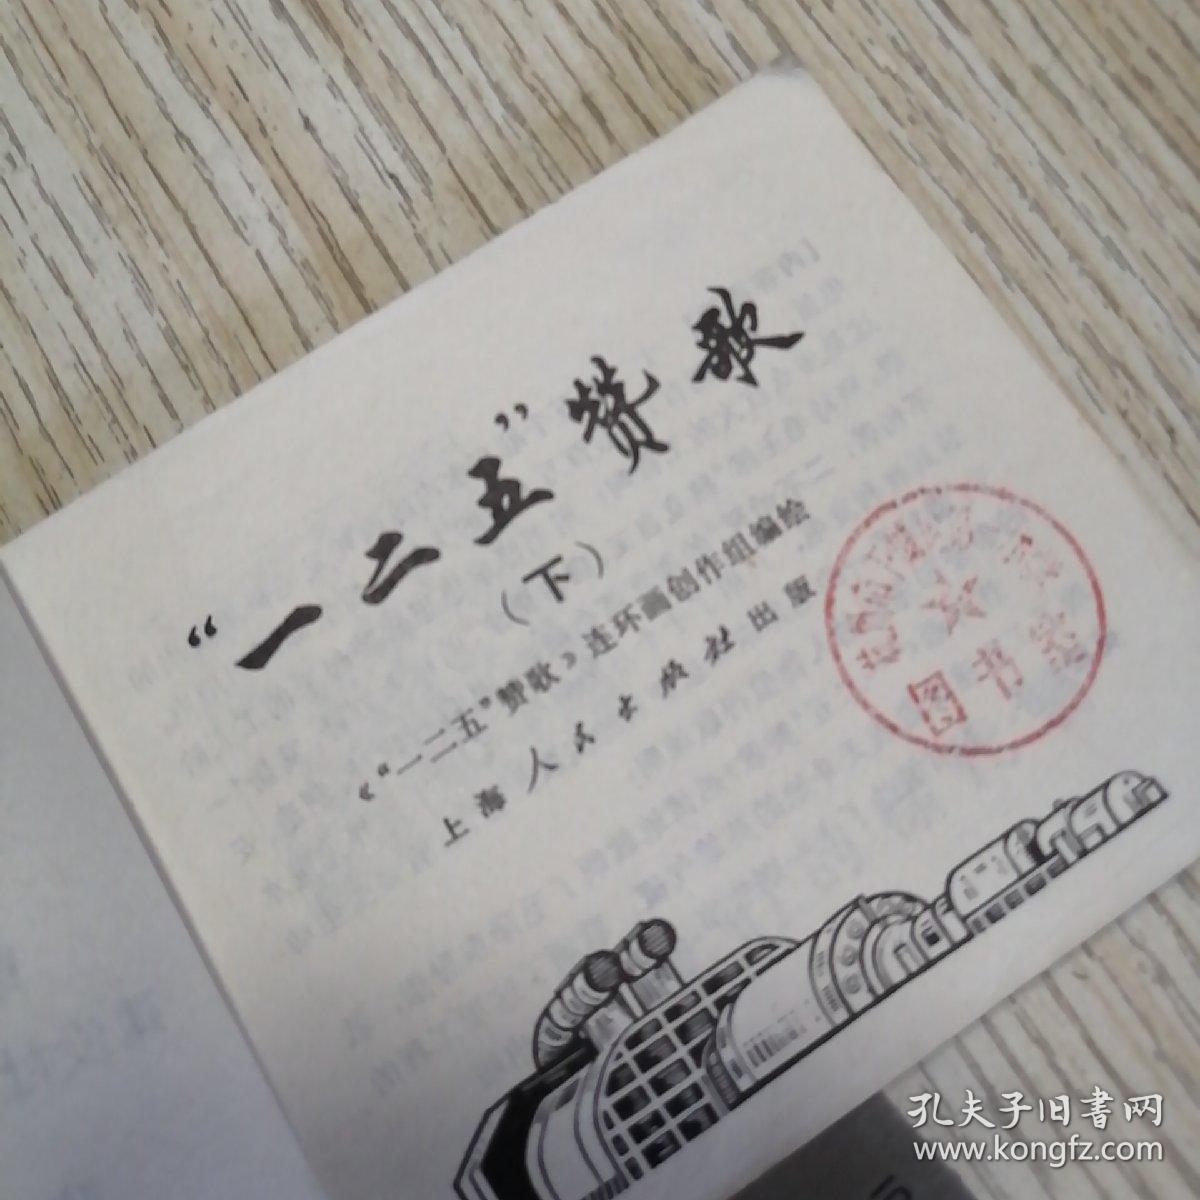 “一二五”赞歌
（下）
《“一二五”赞歌》连环画创作组编绘
上海人民出版社出版
图书
孔夫子旧书网
www.kongfz.com